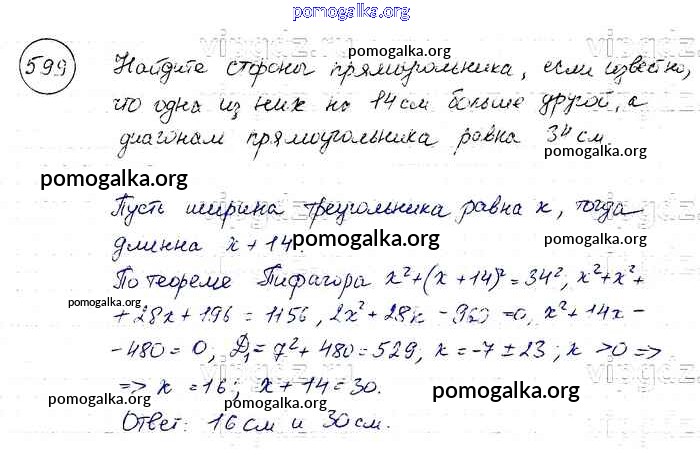 pomogalka.org
599 Найдите стороны прямоугольника, если известно,
pomogalka.org
что одна из них на 14 см больше другой, а
диагонам прямоугольника равна 34 см
pomogalka.org
pomogalka.org
Пусть ширина треугольника равна x, тогда
длинна x + 14.
pomogalka.org
По теореме Пифагора x²+(x+14)²=34²; x²+x²+
pomogalka.org
+ 28x + 196 = 1156, 2x² + 28x - 960 = 0, x² + 14x -
- 480 = 0, D₁ = 7² + 480 = 529, x = -7 ± 23; x > 0 =>
=> x = 16; x + 14 = 30.
pomogalka.org
pomogalka.org
pomogalka.org
Ответ: 16 см и 30 см.